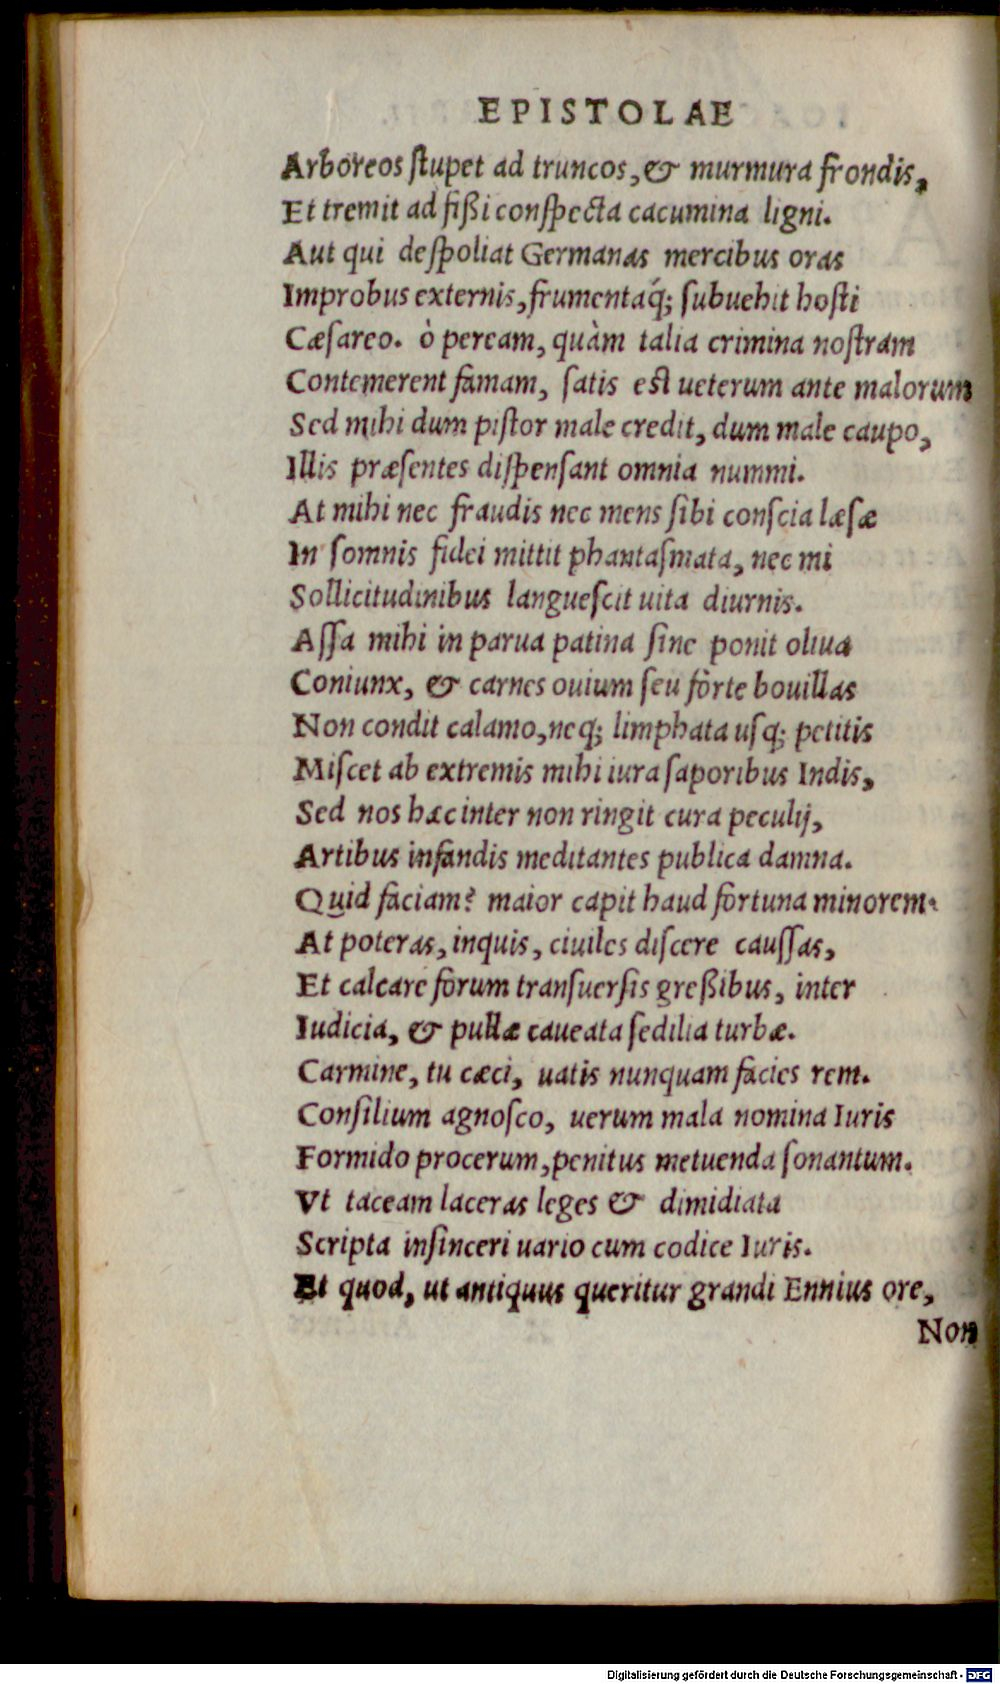 EPISTOLAE
Arboreos ſtupet ad truncos, & murmura frondis,
Et tremit ad fißi conſpecta cacumina ligni.
Aut qui deſpoliat Germanas mercibus oras
Improbus externis, frumentaq́; ſubuehit hoſti
Cæſareo. ò peream, quàm talia crimina noſtram
Contemerent famam, ſatis eſt ueterum ante malorum
Sed mihi dum piſtor male credit, dum male caupo,
Illis præſentes diſpenſant omnia nummi.
At mihi nec fraudis nec mens ſibi conſcia læſæ
In ſomnis fidei mittit phantaſmata, nec mi
Sollicitudinibus langueſcit uita diurnis.
Aſſa mihi in parua patina ſine ponit oliua
Coniunx, & carnes ouium ſeu fòrte bouillas
Non condit calamo, neq; limphata uſq; petitis
Miſcet ab extremis mihi iura ſaporibus Indis,
Sed nos hæc inter non ringit cura peculij,
Artibus infandis meditantes publica damna.
Quid faciam? maior capit haud fortuna minorem.
At poteras, inquis, ciuiles diſcere cauſſas,
Et calcare forum tranſuerſis greßibus, inter
Iudicia, & pullæ caueata ſedilia turbæ.
Carmine, tu cæci, uatis nunquam facies rem.
Conſilium agnoſco, uerum mala nomina Iuris
Formido procerum, penitus metuenda ſonantum.
Vt taceam laceras leges & dimidiata
Scripta inſinceri uario cum codice Iuris.
Et quod, ut antiquus queritur grandi Ennius ore,
Non
Digitalisierung gefördert durch die Deutsche Forschungsgemeinschaft - DFG